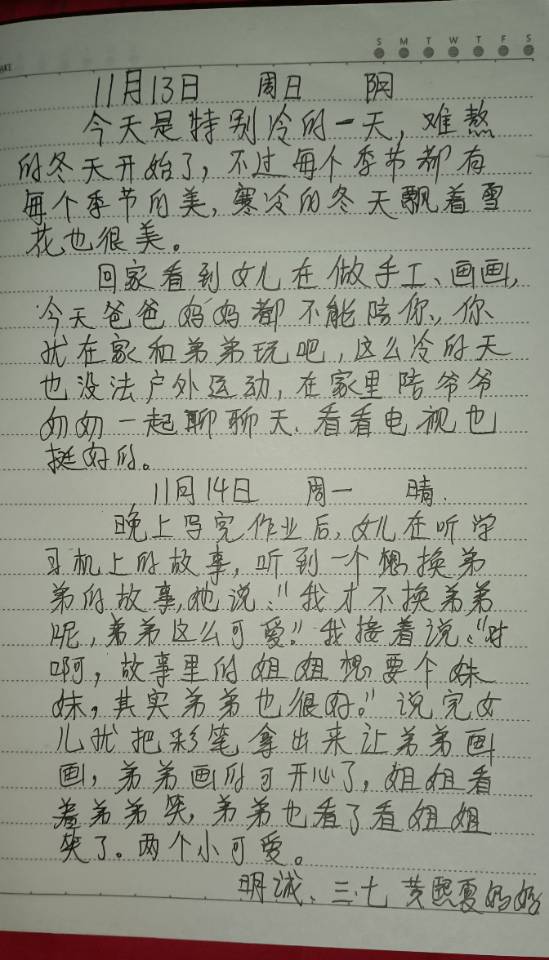 S M T W T F S
11月13日 周日 阴
今天是特别冷的一天,难熬
的冬天开始了,不过每个季节都有
每个季节的美,寒冷的冬天飘着雪
花也很美。
回家看到女儿在做手工、画画,
今天爸爸妈妈都不能陪你,你
就在家和弟弟玩吧,这么冷的天
也没法户外运动,在家里陪爷爷
奶奶一起聊聊天、看看电视也
挺好的。
11月14日 周一 晴.
晚上写完作业后,女儿在听学
习机上的故事,听到一个想换弟
弟的故事,她说:"我才不换弟弟
呢,弟弟这么可爱!"我接着说:"对
啊,故事里的姐姐想要个妹
妹,其实弟弟也很好。"说完女
儿就把彩笔拿出来让弟弟画
画,弟弟画的可开心了,姐姐看
着弟弟笑,弟弟也看了看姐姐
笑了。两个小可爱。
明诚、三.七 黄熙夏妈妈